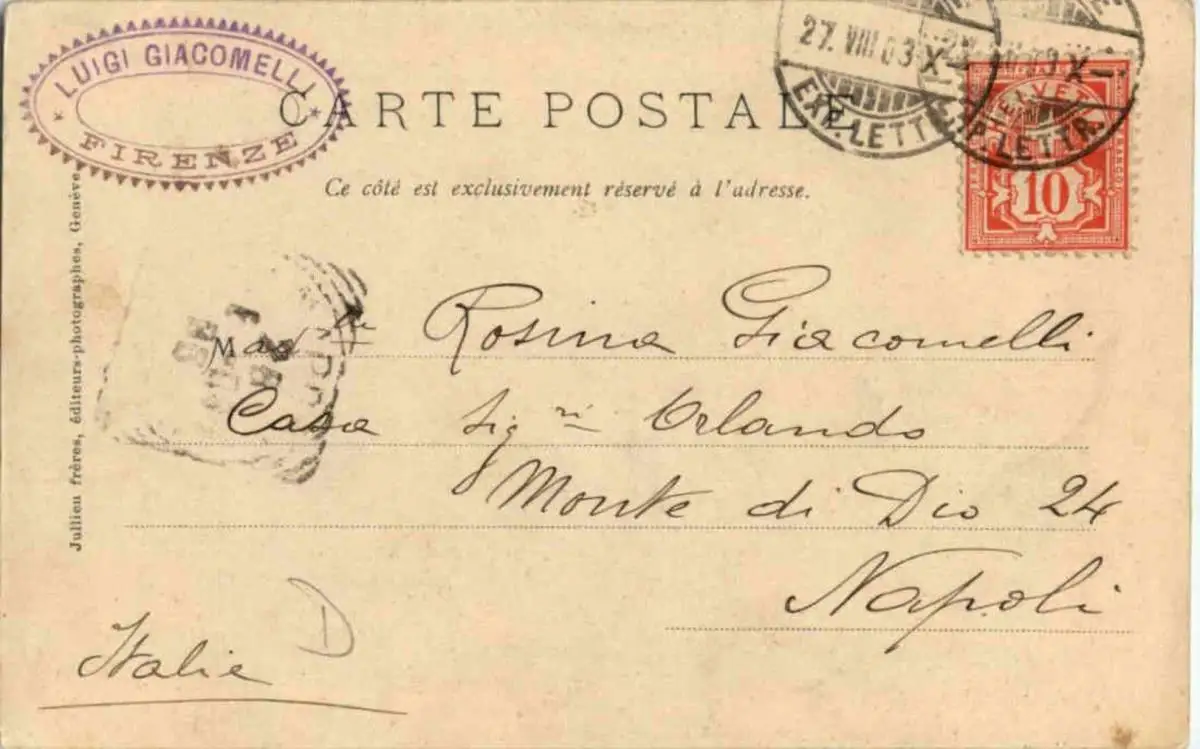 LUIGI GIACOMELLI
FIRENZE
CARTE POSTALE
Ce côté est exclusivement réservé à l'adresse.
27. VIII 03 X
EXP. LETTR.
EXP. LETTR.
10
Jullien frères, éditeurs-photographes, Genève
Rosina Giacomelli
Casa Sig.ri Orlando
Monte di Dio 24
Napoli
Italie
D